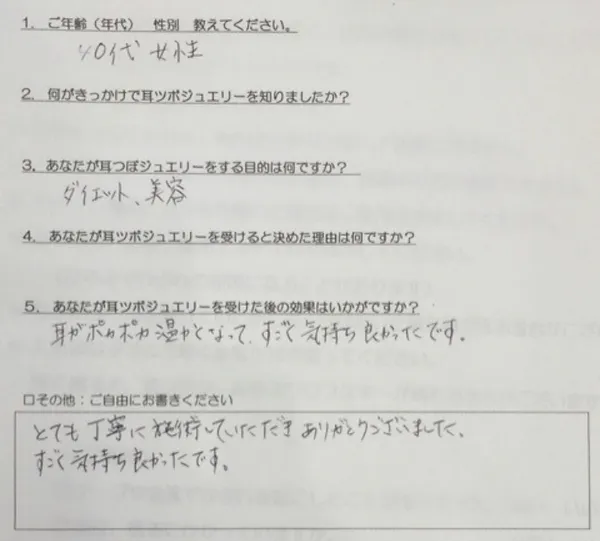 1. ご年齢（年代） 性別 教えてください。
40代 女性
2. 何がきっかけで耳ツボジュエリーを知りましたか？
3. あなたが耳つぼジュエリーをする目的は何ですか？
ダイエット、美容
4. あなたが耳ツボジュエリーを受けると決めた理由は何ですか？
5. あなたが耳ツボジュエリーを受けた後の効果はいかがですか？
耳がポカポカ温かくなって、すごく気持ち良かったです。
口その他：ご自由にお書きください
とても丁寧に施術していただきありがとうございました。
すごく気持ち良かったです。